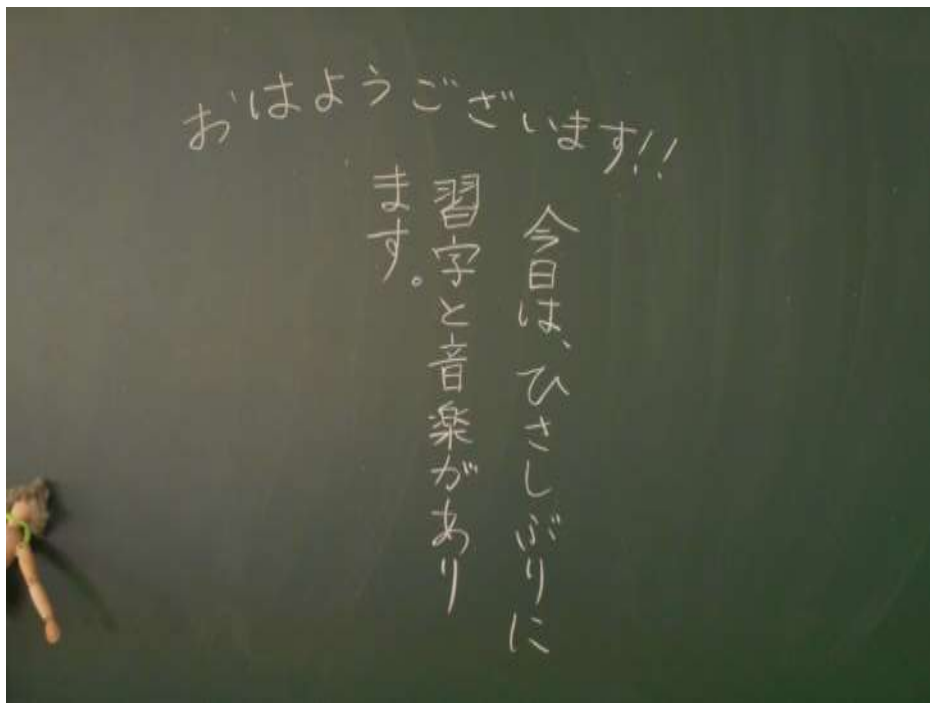 おはようございます!!
今日は、ひさしぶりに
習字と音楽があり
ます。